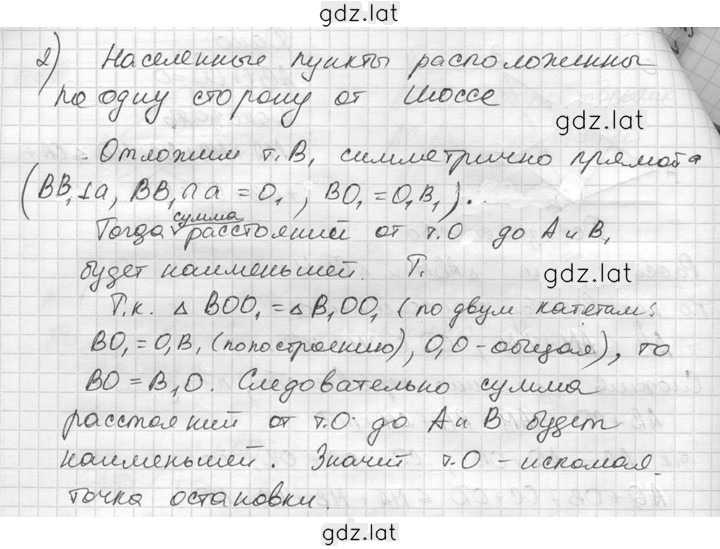 gdz.lat
2) Населенные пункты расположенны
по одну сторону от шоссе
gdz.lat
Отложим т. B₁ симметрично прямой a
(BB₁⊥a, BB₁∩a = O₁, BO₁=O₁B₁).
сумма
Тогда расстояний от т.O до A и B₁
будет наименьшей. Т.
gdz.lat
Т.к. △ BOO₁ = △ B₁OO₁ (по двум катетам:
BO₁ = O₁B₁ (по построению), O₁O - общая), то
BO = B₁O. Следовательно сумма
gdz.lat
расстояний от т.O до A и B будет
наименьшей. Значит т.O - искомая
точка остановки.
gdz.lat